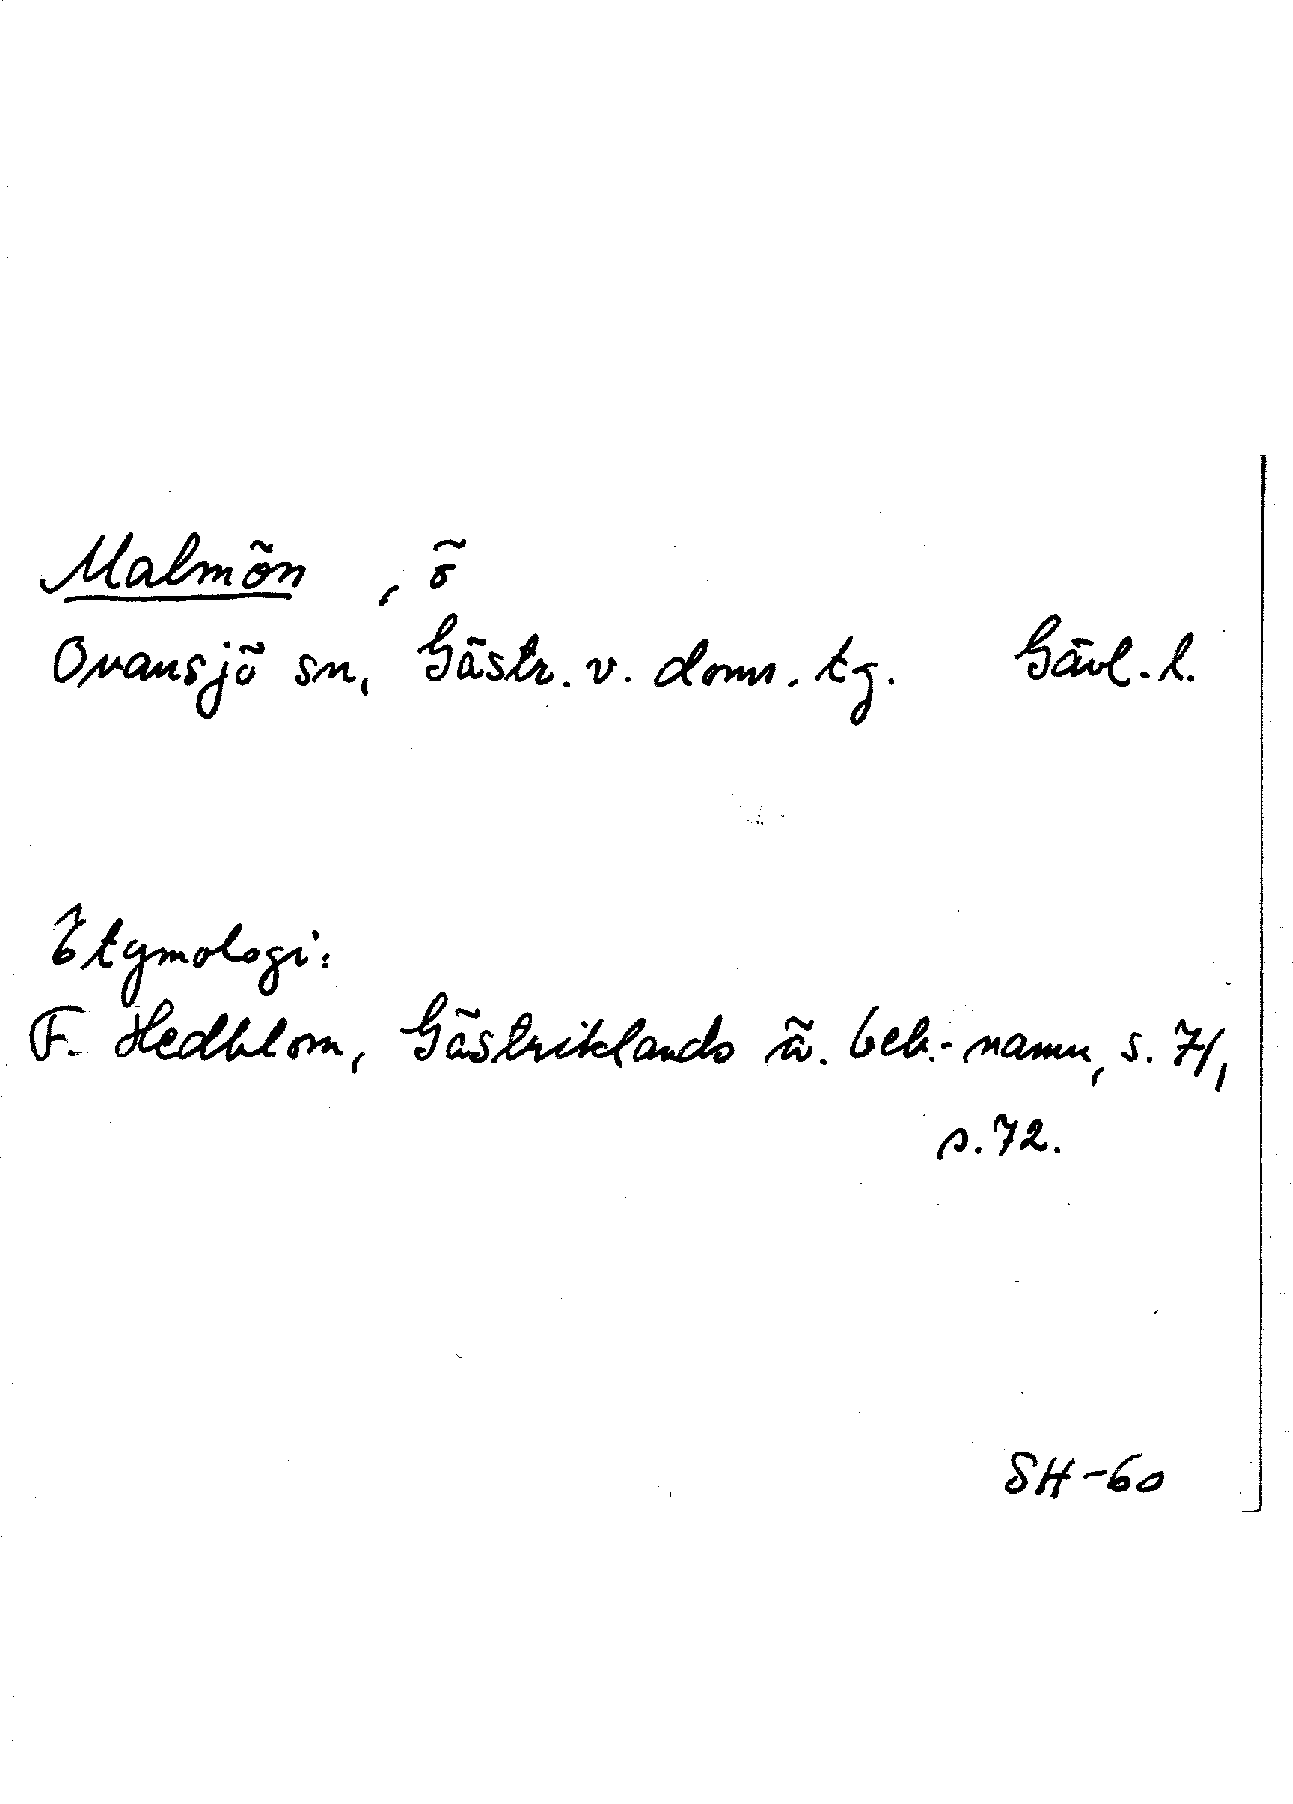 Malmön, ö
Ovansjö sn, Gästr. v. doms. tg. Gävl. l.
Etymologi:
F. Hedblom, Gästriklands ä. beb.-namn, s. 71,
s. 72.
SH-60